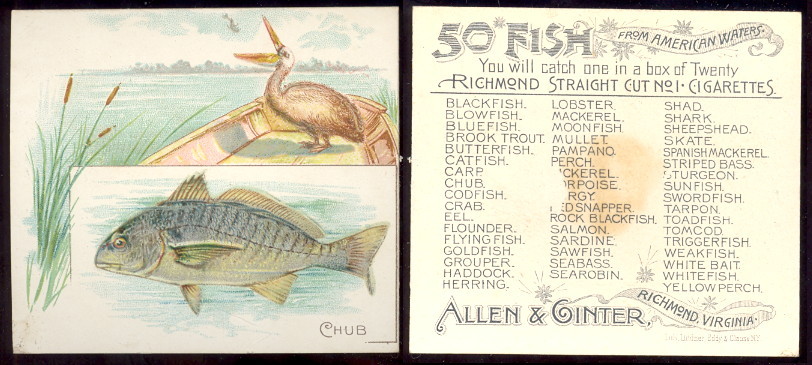 CHUB
50 FISH FROM AMERICAN WATERS.
You will catch one in a box of Twenty
RICHMOND STRAIGHT CUT NO 1. CIGARETTES.
BLACKFISH.
BLOWFISH.
BLUEFISH.
BROOK TROUT.
BUTTERFISH.
CATFISH.
CARP
CHUB.
CODFISH.
CRAB.
EEL.
FLOUNDER.
FLYING FISH.
GOLDFISH.
GROUPER.
HADDOCK.
HERRING.
LOBSTER.
MACKEREL.
MOONFISH.
MULLET.
PAMPANO.
PERCH.
CKEREL.
RPOISE.
RGY.
EDSNAPPER.
ROCK BLACKFISH.
SALMON.
SARDINE.
SAWFISH.
SEABASS.
SEAROBIN.
SHAD.
SHARK.
SHEEPSHEAD.
SKATE.
SPANISH MACKEREL.
STRIPED BASS.
STURGEON.
SUNFISH.
SWORDFISH.
TARPON.
TOADFISH.
TOMCOD.
TRIGGERFISH.
WEAKFISH.
WHITE BAIT.
WHITEFISH.
YELLOW PERCH.
ALLEN & GINTER,
RICHMOND, VIRGINIA.